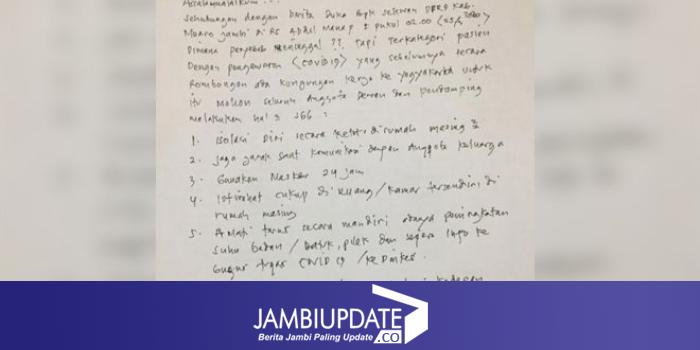 Assalamualaikum ....
Sehubungan dengan berita duka Bpk seswan DPRD Kab.
Muaro Jambi di RS Abdul Manap ± pukul 02.00
Dimana penyebab meninggal ?? Tapi Terkategori pasien
Dengan pengawasan (covid19) yang sebelumnya secara
Rombongan ada kongungan kerja ke yogyakarta untuk
itu mohon seluruh Anggota Dewan dan pendamping
melakukan hal2 sbb :
1. isolasi Diri secara ketat dirumah masing2
2. Jaga jarak saat komunikasi dengan Anggota keluarga
3. Gunakan Masker 24 jam
4. Istirahat cukup di Ruang/kamar tersendiri di
rumah masing
5. Amati terus secara mandiri adanya peningkatan
suhu badan / batuk, pilek dan segera info ke
Gugus tugas COVID 19 /ke Dinkes.
JAMBIUPDATE
.CO
Berita Jambi Paling Update